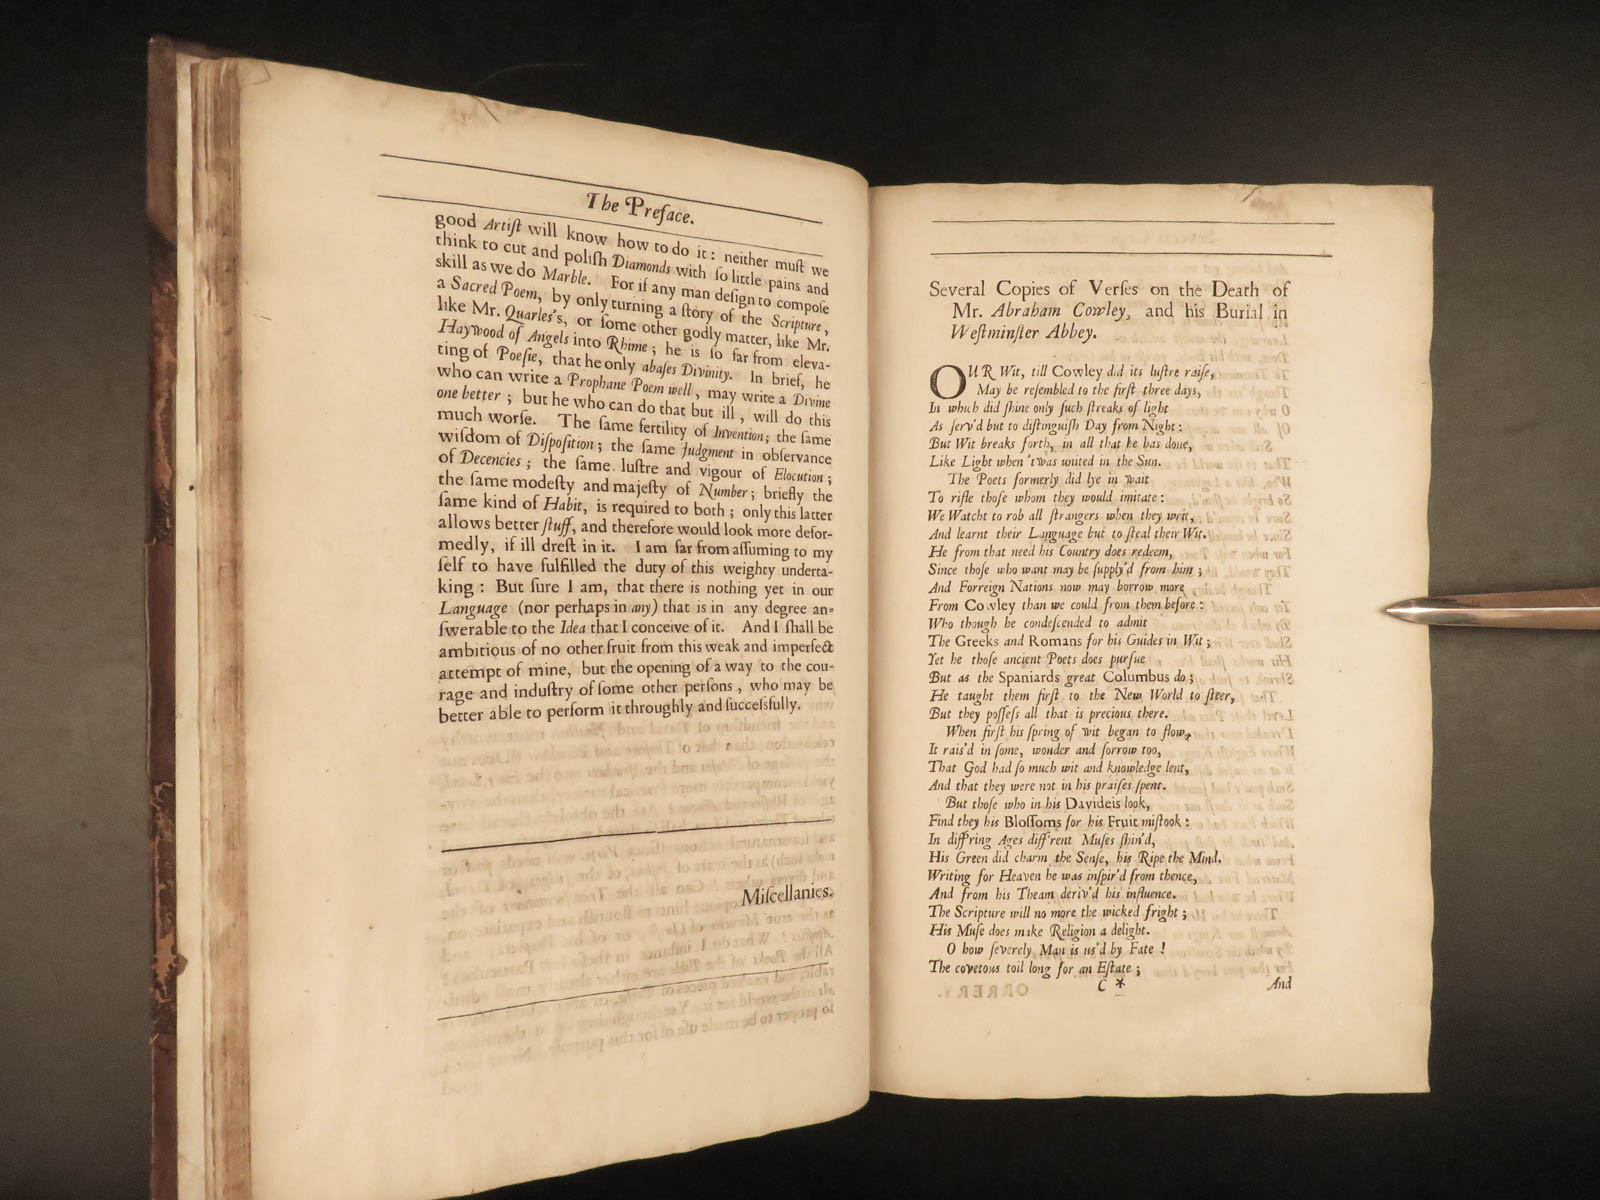 The Preface.
good Artiſt will know how to do it: neither muſt we
think to cut and poliſh Diamonds with ſo little pains and
skill as we do Marble. For if any man deſign to compoſe
a Sacred Poem, by only turning a ſtory of the Scripture,
like Mr. Quarles's, or ſome other godly matter, like Mr.
Haywood of Angels into Rhime; he is ſo far from eleva-
ting of Poeſie, that he only abaſes Divinity. In brief, he
who can write a Prophane Poem well, may write a Divine
one better; but he who can do that but ill, will do this
much worſe. The ſame fertility of Invention; the ſame
wiſdom of Diſpoſition; the ſame Judgment in obſervance
of Decencies; the ſame luſtre and vigour of Elocution;
the ſame modeſty and majeſty of Number; briefly the
ſame kind of Habit, is required to both; only this latter
allows better ſtuff, and therefore would look more defor-
medly, if ill dreſt in it. I am far from aſſuming to my
ſelf to have fulfilled the duty of this weighty underta-
king: But ſure I am, that there is nothing yet in our
Language (nor perhaps in any) that is in any degree an-
ſwerable to the Idea that I conceive of it. And I ſhall be
ambitious of no other fruit from this weak and imperfect
attempt of mine, but the opening of a way to the cou-
rage and induſtry of ſome other perſons, who may be
better able to perform it throughly and ſucceſsfully.
Miſcellanies.
Several Copies of Verſes on the Death of
Mr. Abraham Cowley, and his Burial in
Weſtminſter Abbey.
OUR Wit, till Cowley did its luſtre raiſe,
May be reſembled to the firſt three days,
In which did ſhine only ſuch ſtreaks of light
As ſerv'd but to diſtinguiſh Day from Night:
But Wit breaks forth, in all that he has done,
Like Light when 'twas united in the Sun.
The Poets formerly did lye in wait
To rifle thoſe whom they would imitate:
We Watcht to rob all ſtrangers when they writ,
And learnt their Language but to ſteal their Wit.
He from that need his Country does redeem,
Since thoſe who want may be ſupply'd from him;
And Forreign Nations now may borrow more
From Cowley than we could from them before:
Who though he condeſcended to admit
The Greeks and Romans for his Guides in Wit;
Yet he thoſe ancient Poets does purſue
But as the Spaniards great Columbus do;
He taught them firſt to the New World to ſteer,
But they poſſeſs all that is precious there.
When firſt his ſpring of wit began to flow,
It rais'd in ſome, wonder and ſorrow too,
That God had ſo much wit and knowledge lent,
And that they were not in his praiſes ſpent.
But thoſe who in his Davideis look,
Find they his Bloſſoms for his Fruit miſtook:
In diff'ring Ages diff'rent Muſes ſhin'd,
His Green did charm the Senſe, his Ripe the Mind.
Writing for Heaven he was inſpir'd from thence,
And from his Theam deriv'd his influence.
The Scripture will no more the wicked fright;
His Muſe does make Religion a delight.
O how ſeverely Man is us'd by Fate!
The covetous toil long for an Eſtate;
C *
And